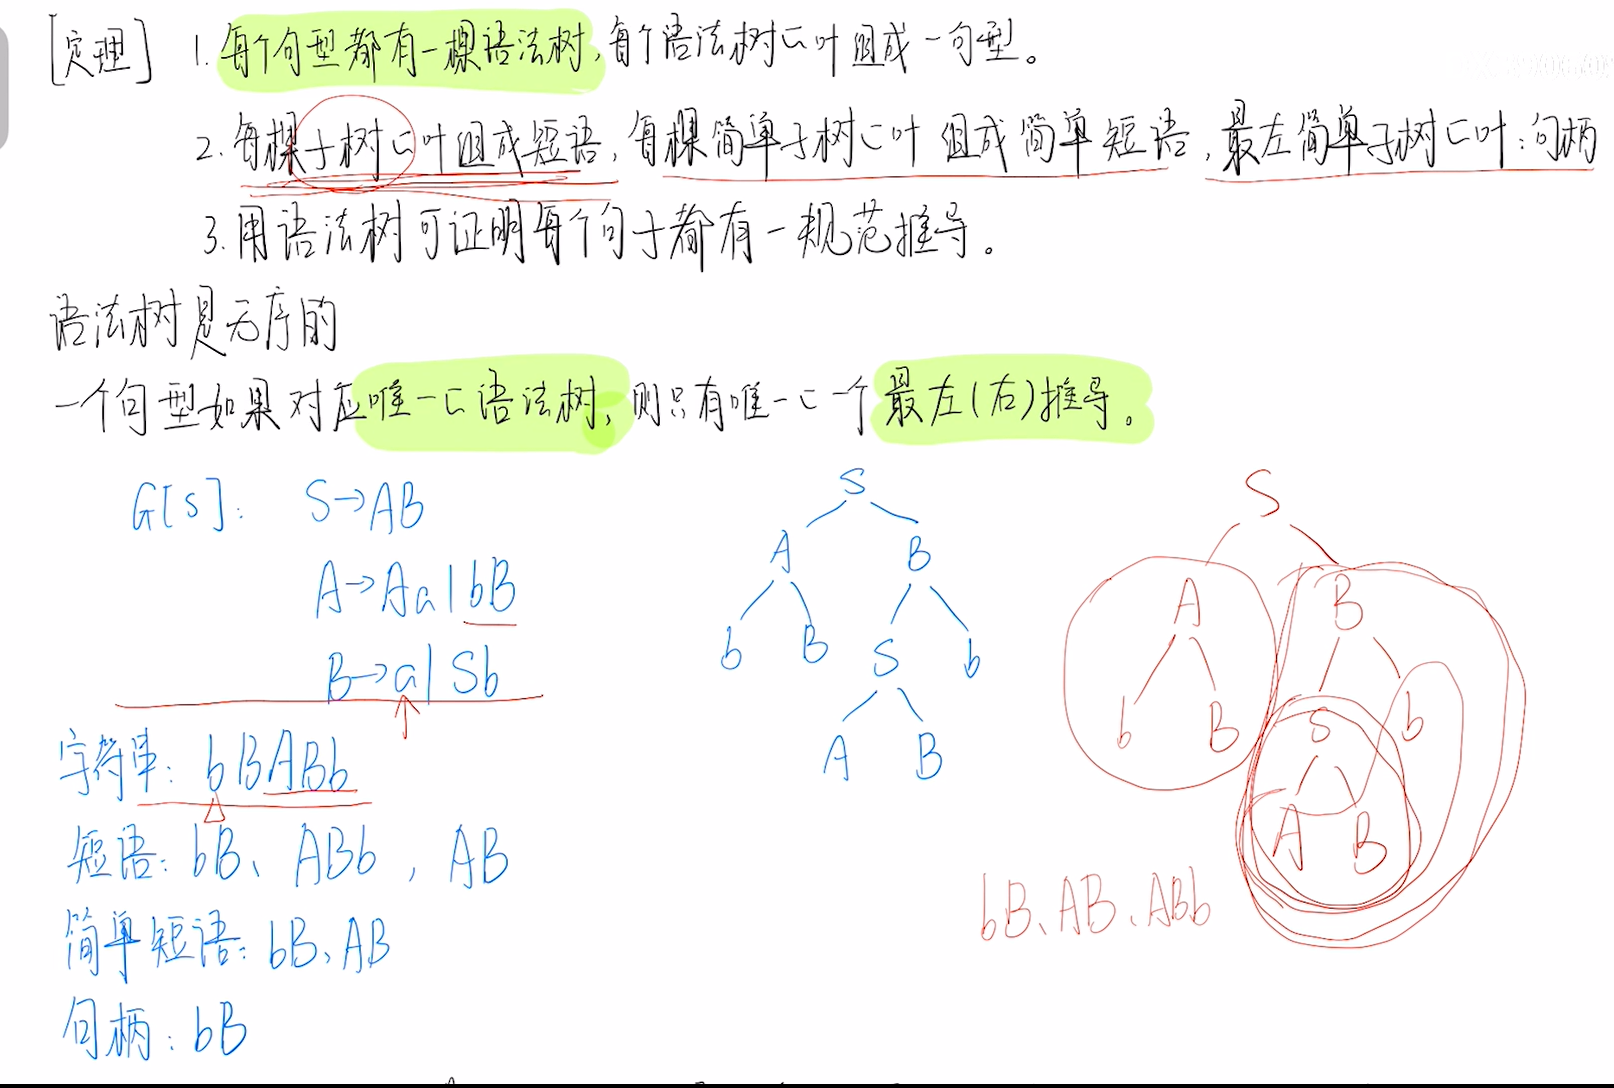 [定理] 1. 每个句型都有一棵语法树,每个语法树の叶组成一句型。
2. 每棵子树の叶组成短语,每棵简单子树の叶组成简单短语,最左简单子树の叶:句柄
3. 用语法树可证明每个句子都有一规范推导。
语法树是无序的
一个句型如果对应唯一の语法树,则只有唯一の一个最左(右)推导。
G[S]: S→AB
A→Aa|bB
B→a|Sb
字符串: bBABb
短语: bB、ABb, AB
简单短语: bB、AB
句柄: bB
S
A B
b B S b
A B
S
A B
b B S b
A B
bB、AB、ABb